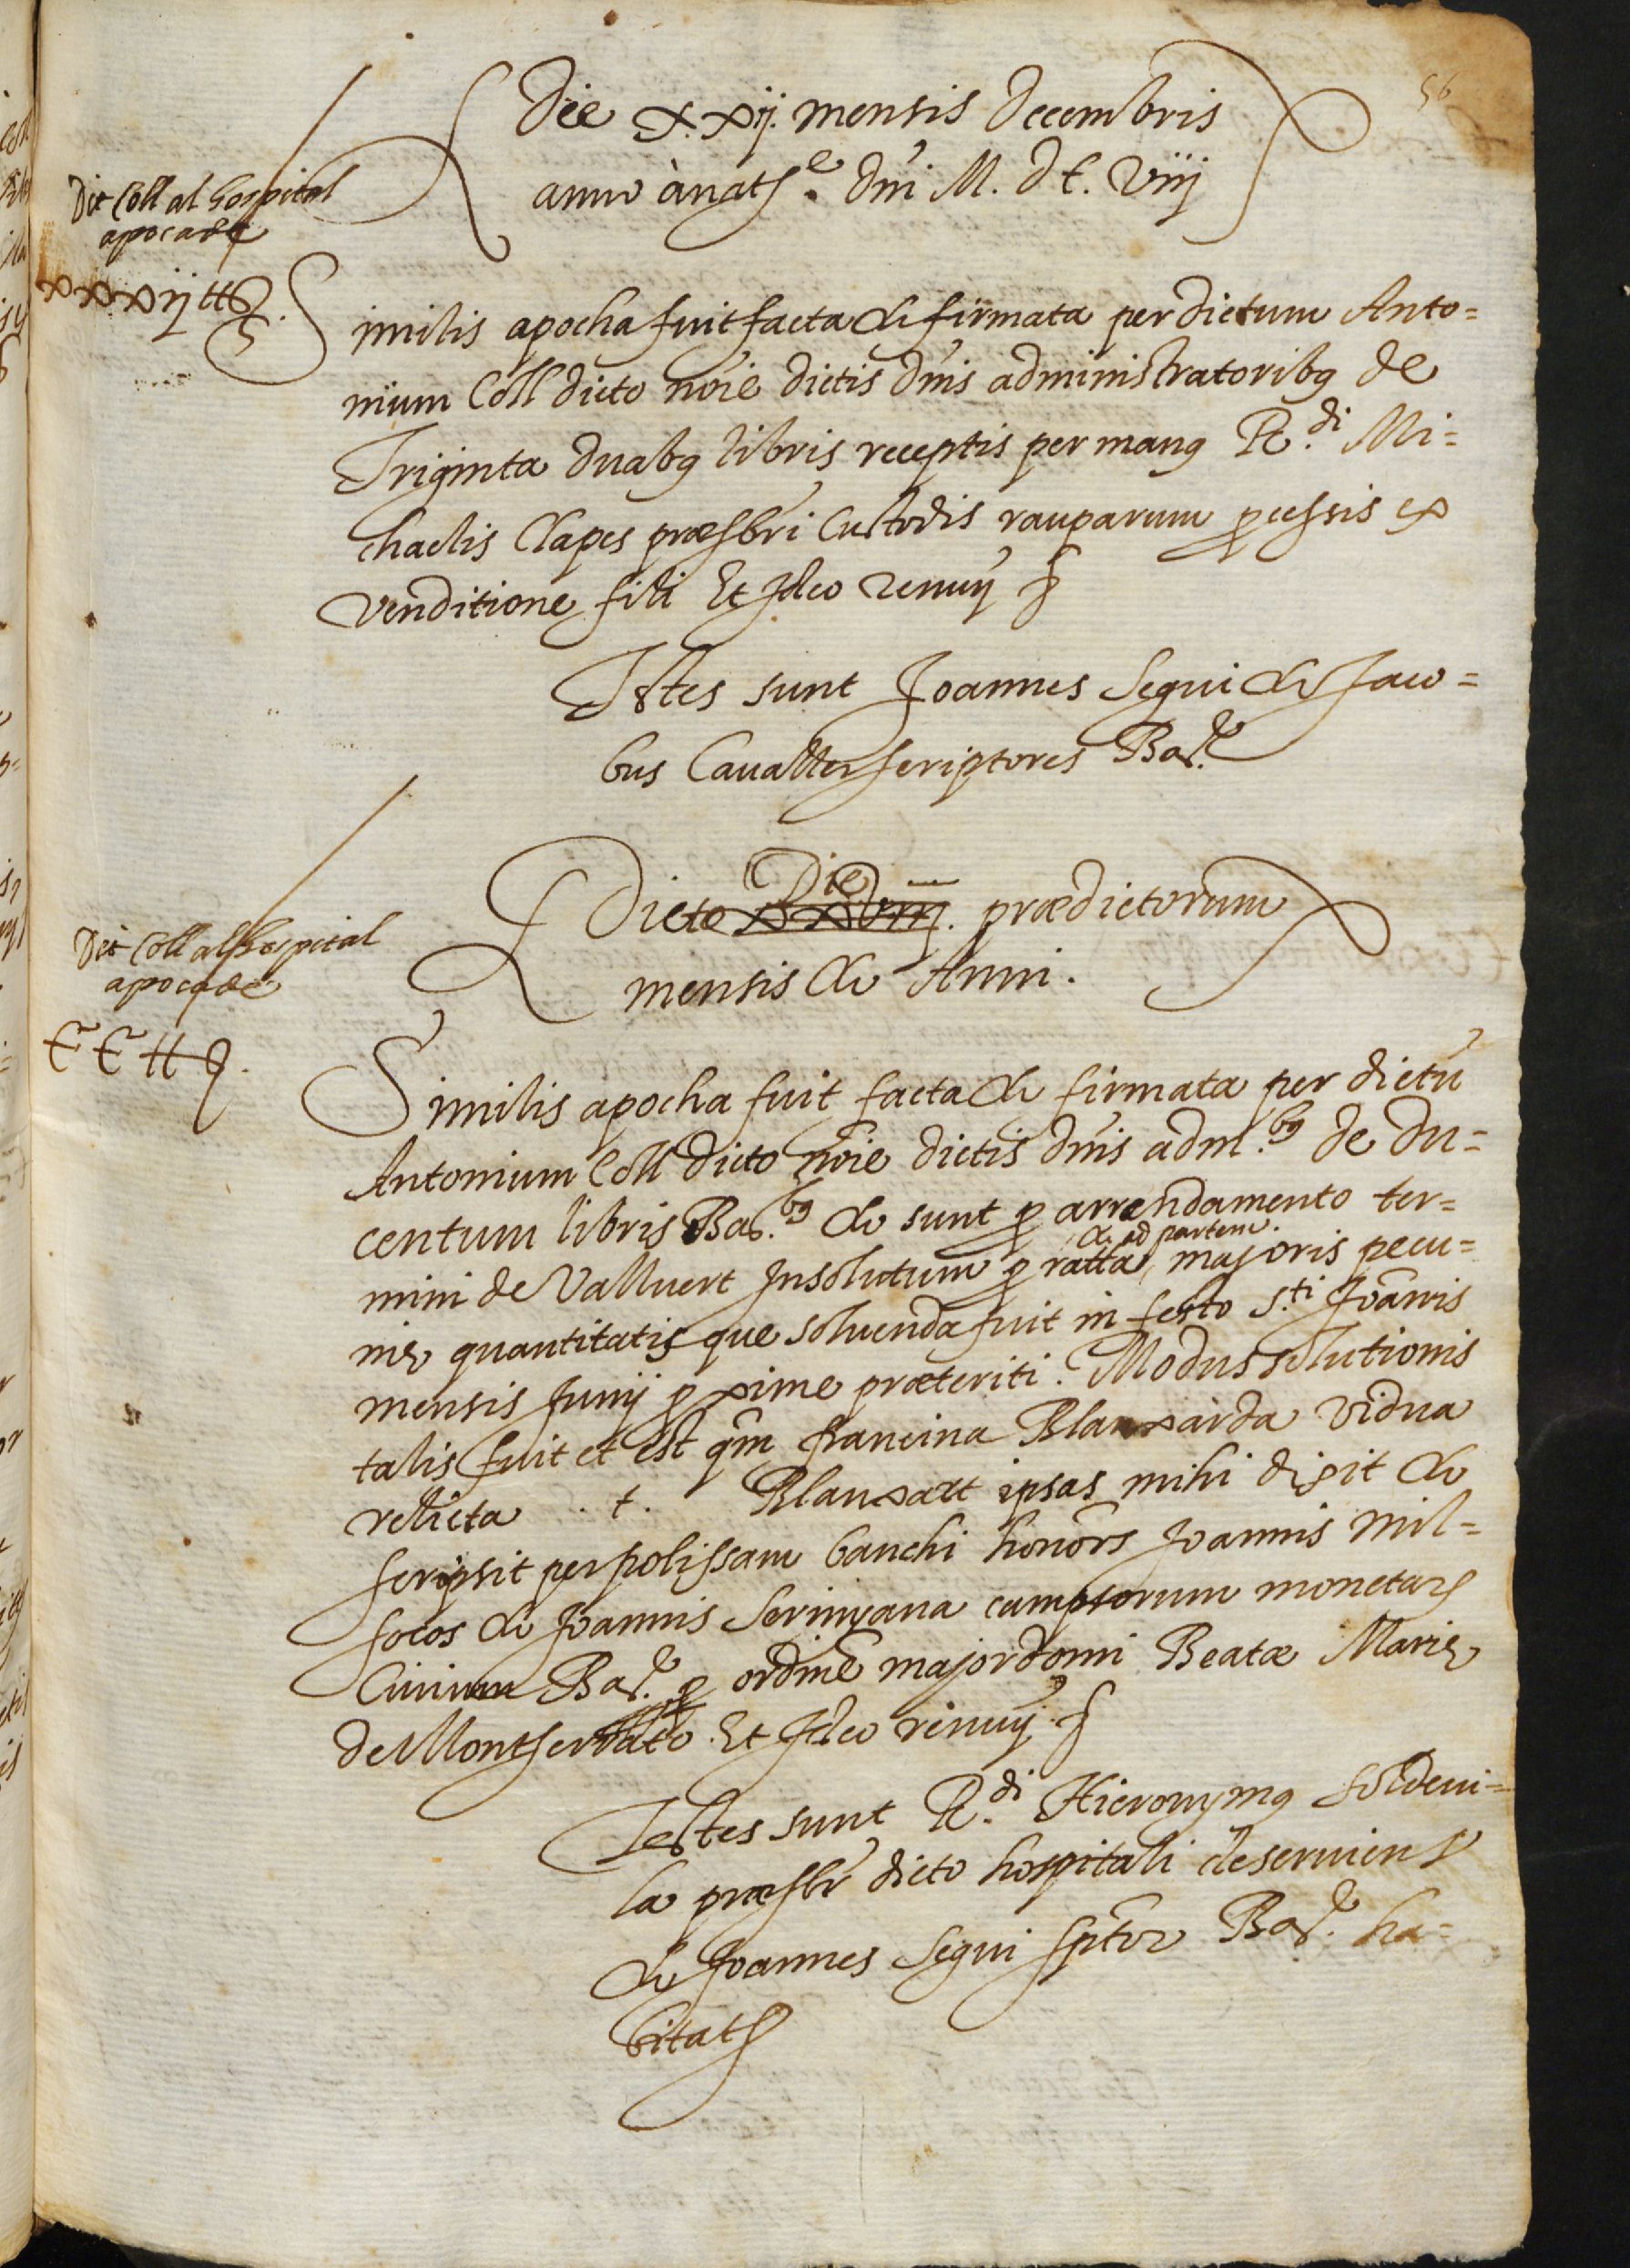 56
Die x.xij. mensis Decembris
anno à nat.e Dñi M. D C. Viij
Dit Coll al hospital
apoca de
xxxij ll §.
Similis apocha fuit facta & firmata per dictum Anto=
nium Coll dicto noīe dictis Dñis administratoribq de
Triginta duabq libris receptis per manq R.di Mi=
chaelis Clapes præsbri Custodis rauparum p cessis ex
venditione fili Et Ideo renuy §
Testes sunt Joannes Segui & Jaco=
bus Cavaller scriptores Bar.e
Dicto Die prædictorum
mensis & Anni.
Dit Coll al hospital
apoca de
C C ll §.
Similis apocha fuit facta & firmata per dictũ
Antonium Coll dicto noīe dictis Dñis adm.bq de du=
centum libris Bar.bq & sunt p arrendamento ter=
mini de Vallvert Insolutum p ratta & ad partem. majoris pecu=
nię quantitatis que solvenda fuit in festo s.ti Joānis
mensis Junij p xime præteriti. Modus solutionis
talis fuit et est qm̃ francina Blanxarda vidua
relicta . t. Blanxart ipsas mihi dixit &
scripsit per polissam banchi honors Joannis Mil=
socos & Joannis Serinyana campsorum monetar
Civium Bar.e p ordinē majordomi Beatæ Marię
de Montserrato. Et Ideo renuy. §
Testes sunt R.di Hieronymq Soldevi=
la præsbr dicto hospitali deserviens
& Joannes Segui sptor Bar.e ha=
bitat